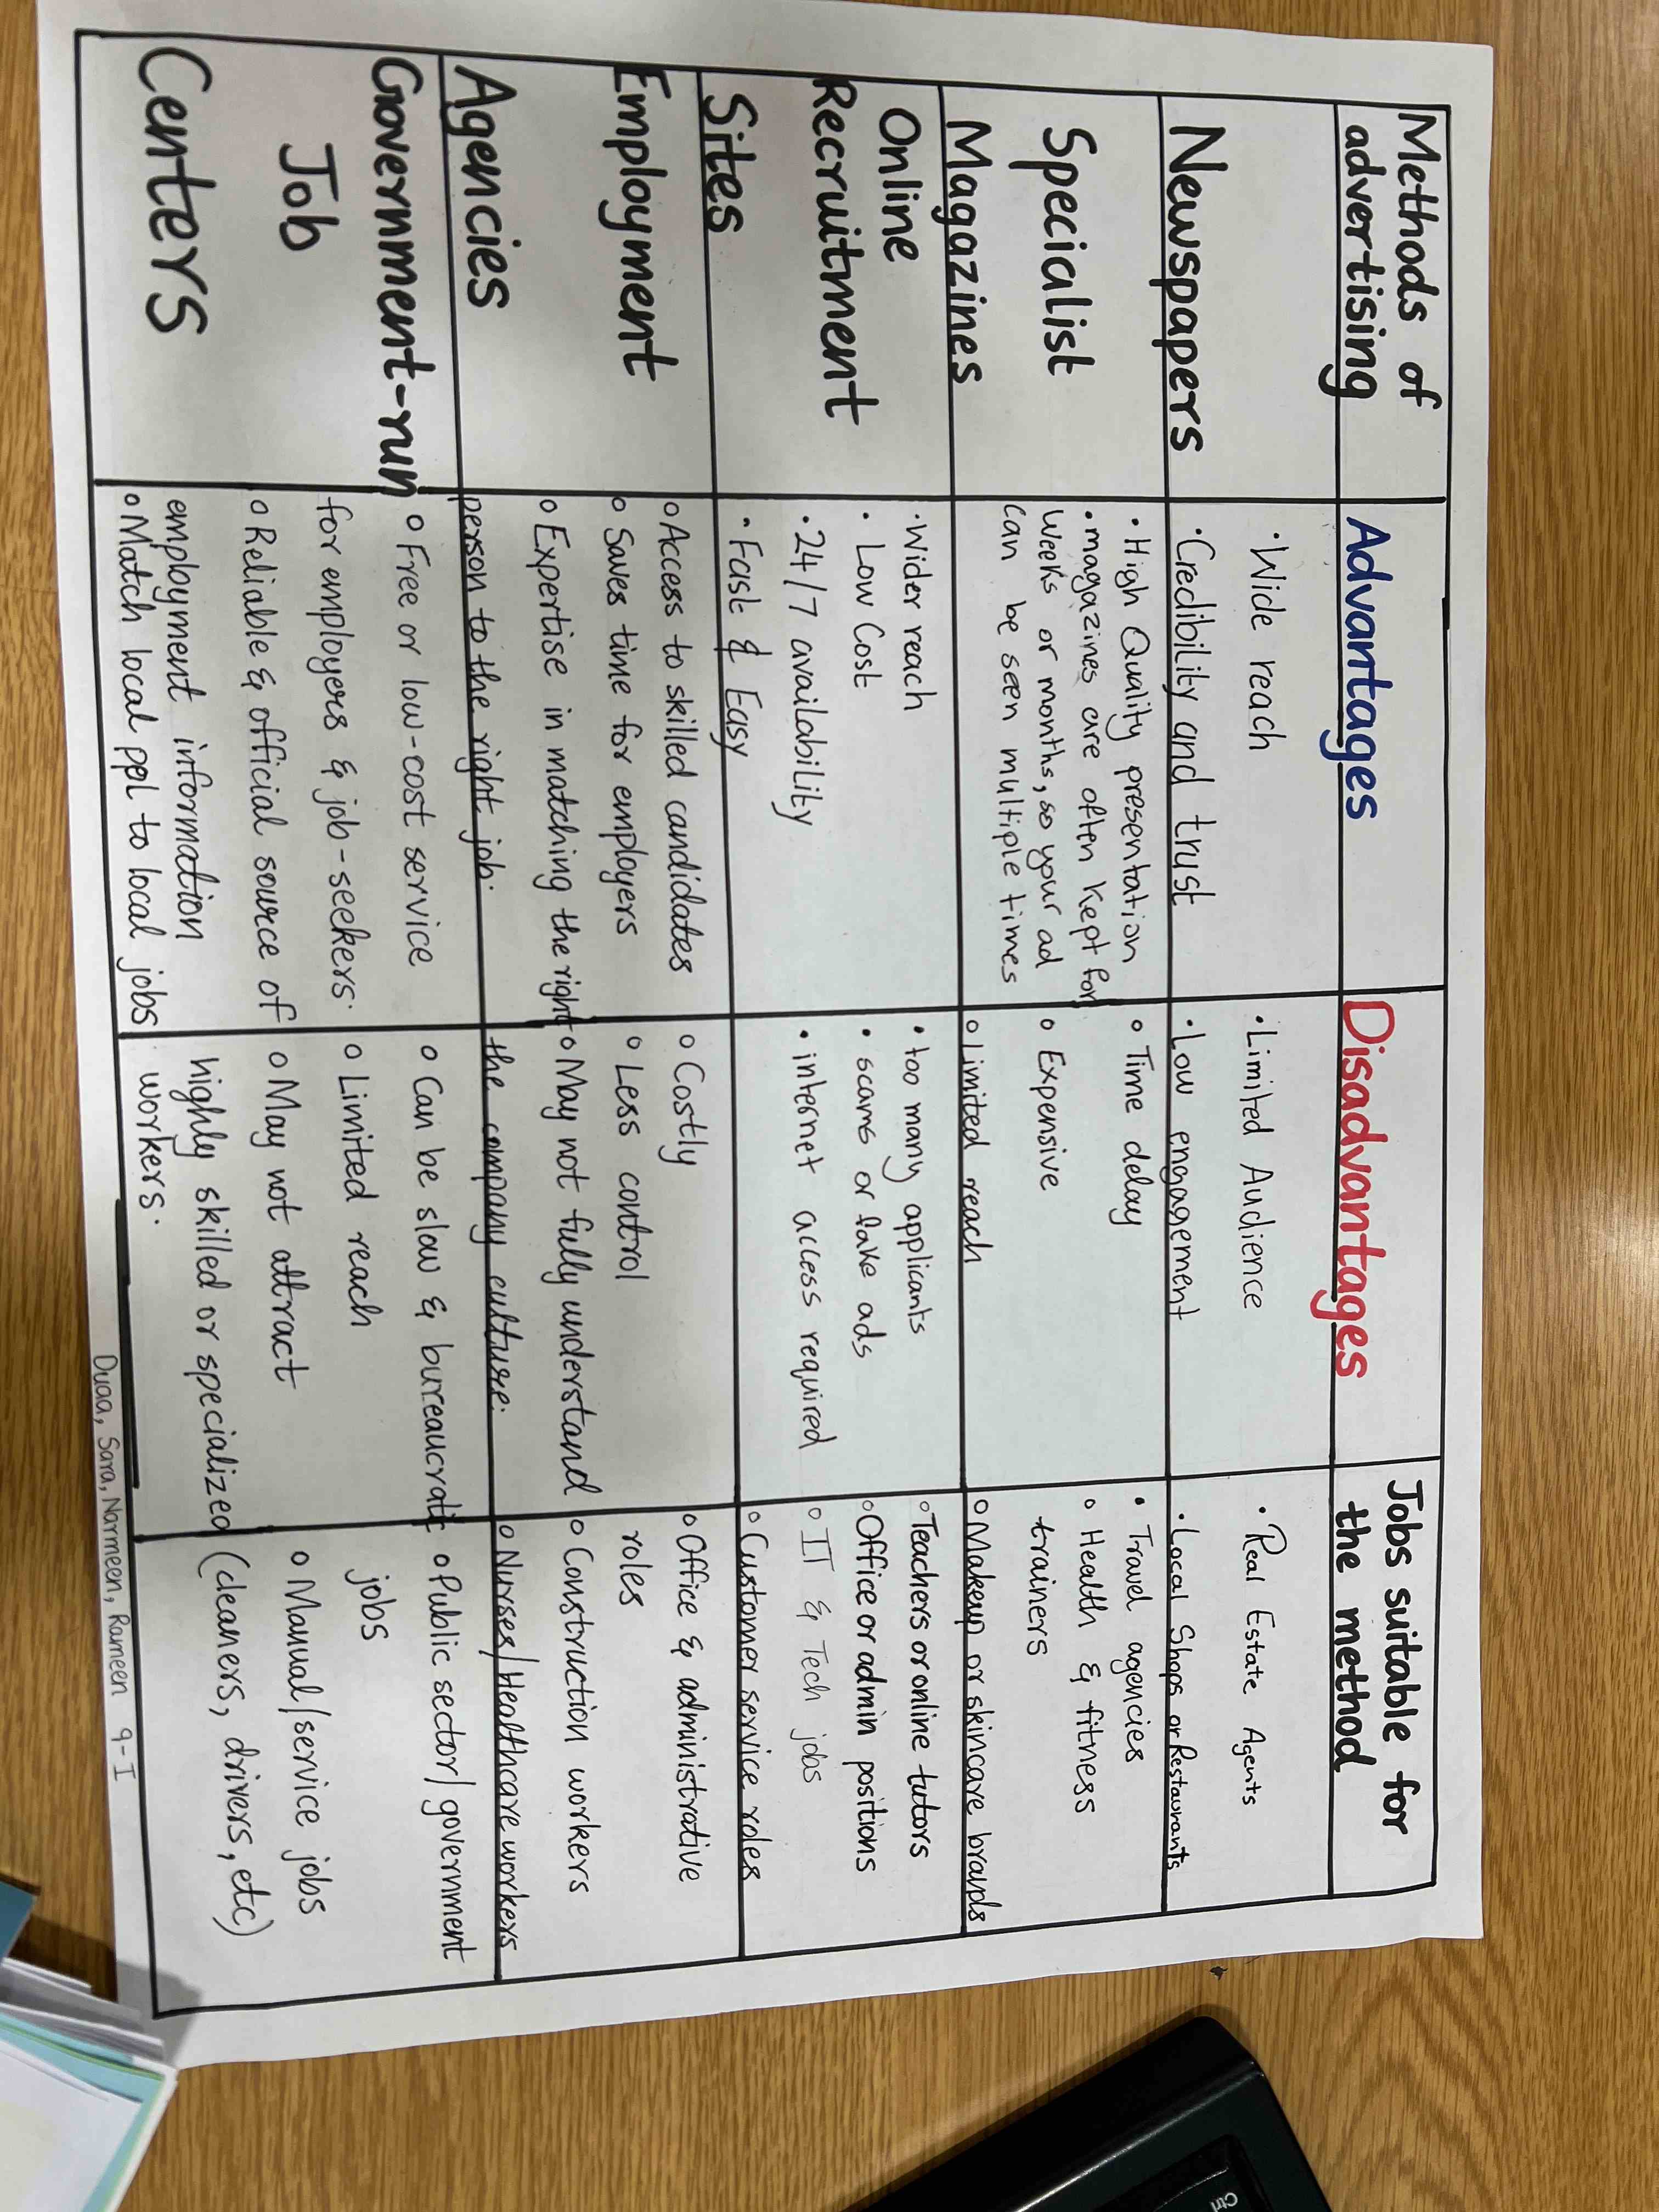 Methods of
advertising
Advantages
Disadvantages
Jobs suitable for
the method
Newspapers
· Wide reach
· Credibility and trust
· Limited Audience
· Low engagement
· Real Estate Agents
· Local Shops or Restaurants
Specialist
Magazines
· High Quality presentation
· magazines are often kept for
weeks or months, so your ad
can be seen multiple times
o Time delay
o Expensive
o Limited reach
· Travel agencies
o Health & fitness
trainers
o Makeup or skincare brands
Online
Recruitment
Sites
· Wider reach
· Low Cost
· 24/7 availability
· Fast & Easy
· too many applicants
· scams or fake ads
· internet access required
o Teachers or online tutors
o Office or admin positions
o IT & Tech jobs
o Customer service roles
Employment
Agencies
o Access to skilled candidates
o Saves time for employers
o Expertise in matching the right
person to the right job.
o Costly
o Less control
o May not fully understand
the company culture.
o Office & administrative
roles
o Construction workers
o Nurses/Healthcare workers
Government-run
Job
Centers
o Free or low-cost service
for employers & job-seekers.
o Reliable & official source of
employment information
o Match local ppl to local jobs
o Can be slow & bureaucratic
o Limited reach
o May not attract
highly skilled or specialized
workers.
o Public sector/government
jobs
o Manual/service jobs
(cleaners, drivers, etc)
Duaa, Sara, Narmeen, Rameen 9-I
Ctrl